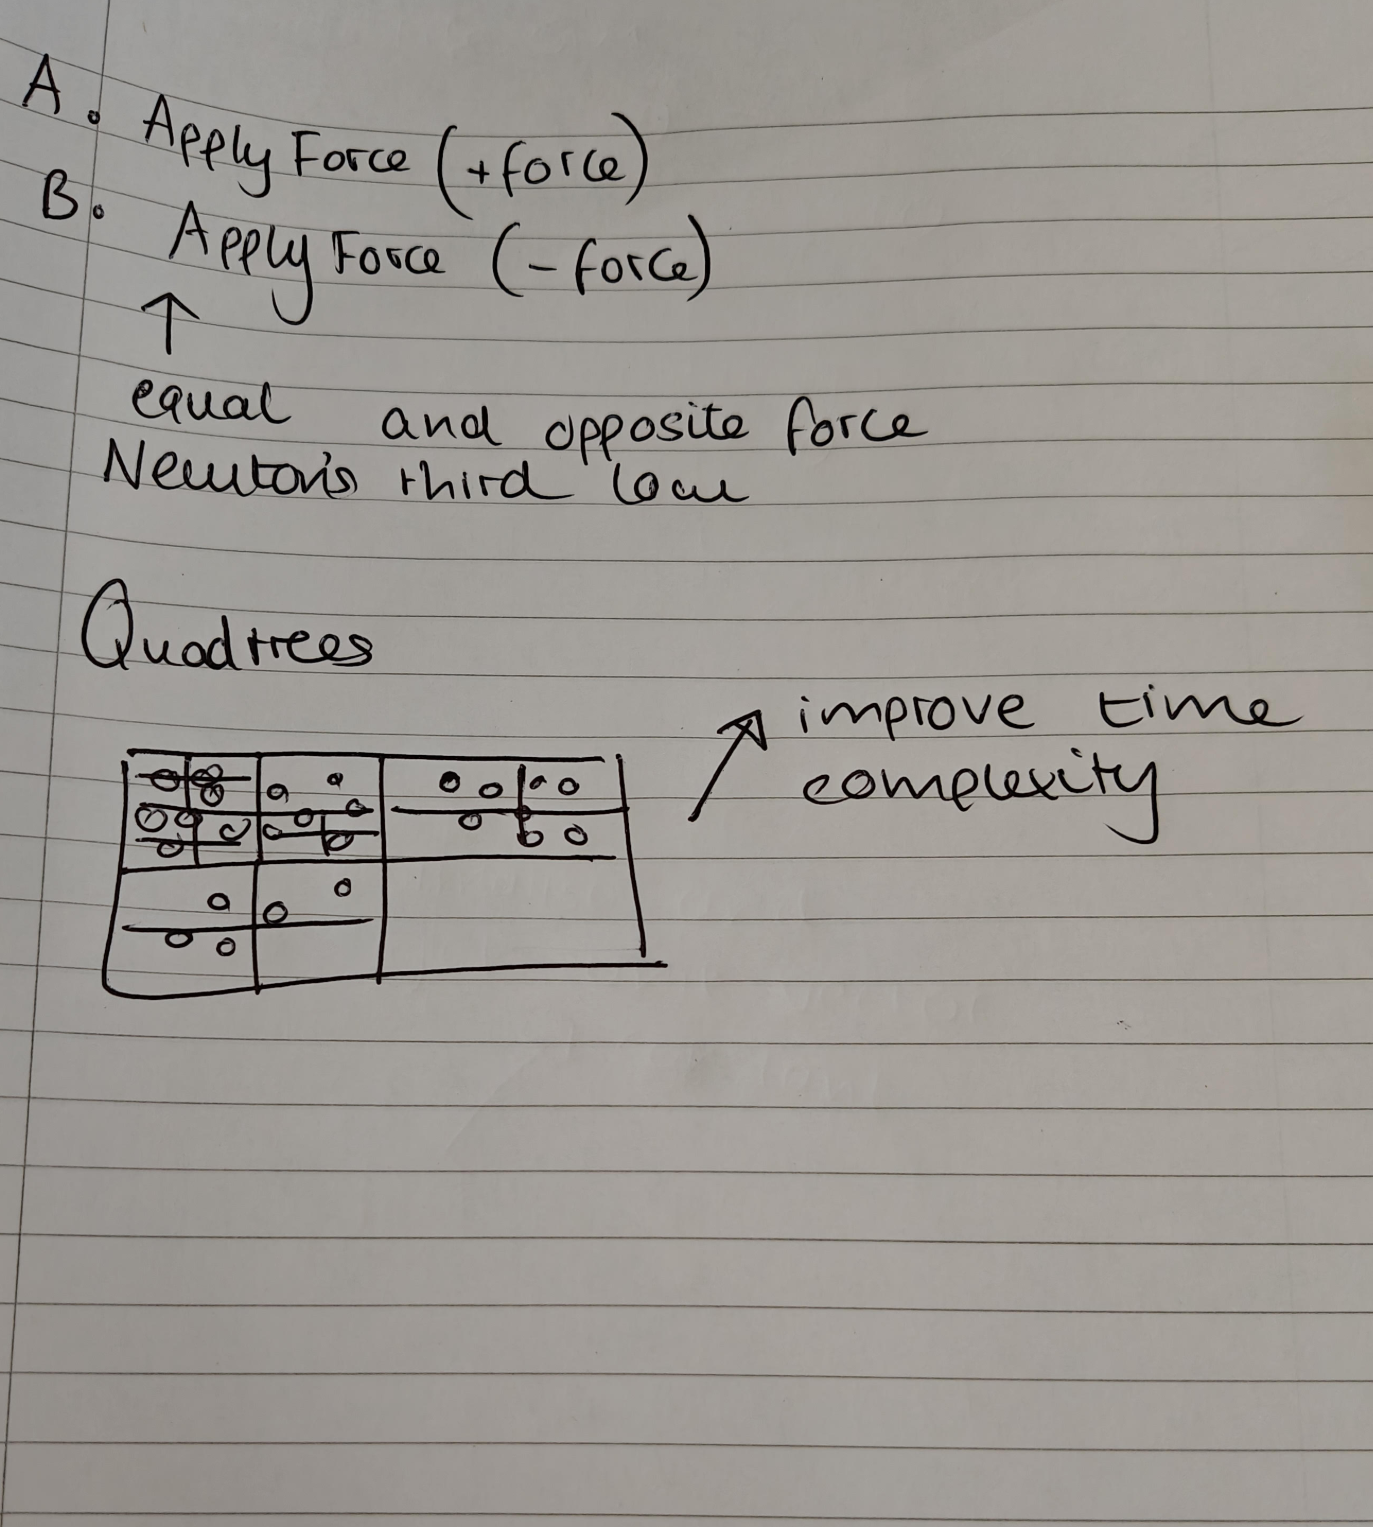 A. Apply Force (+force)
B. Apply Force (-force)
↑
equal and opposite force
Newton's third law
Quadtrees
improve time
complexity